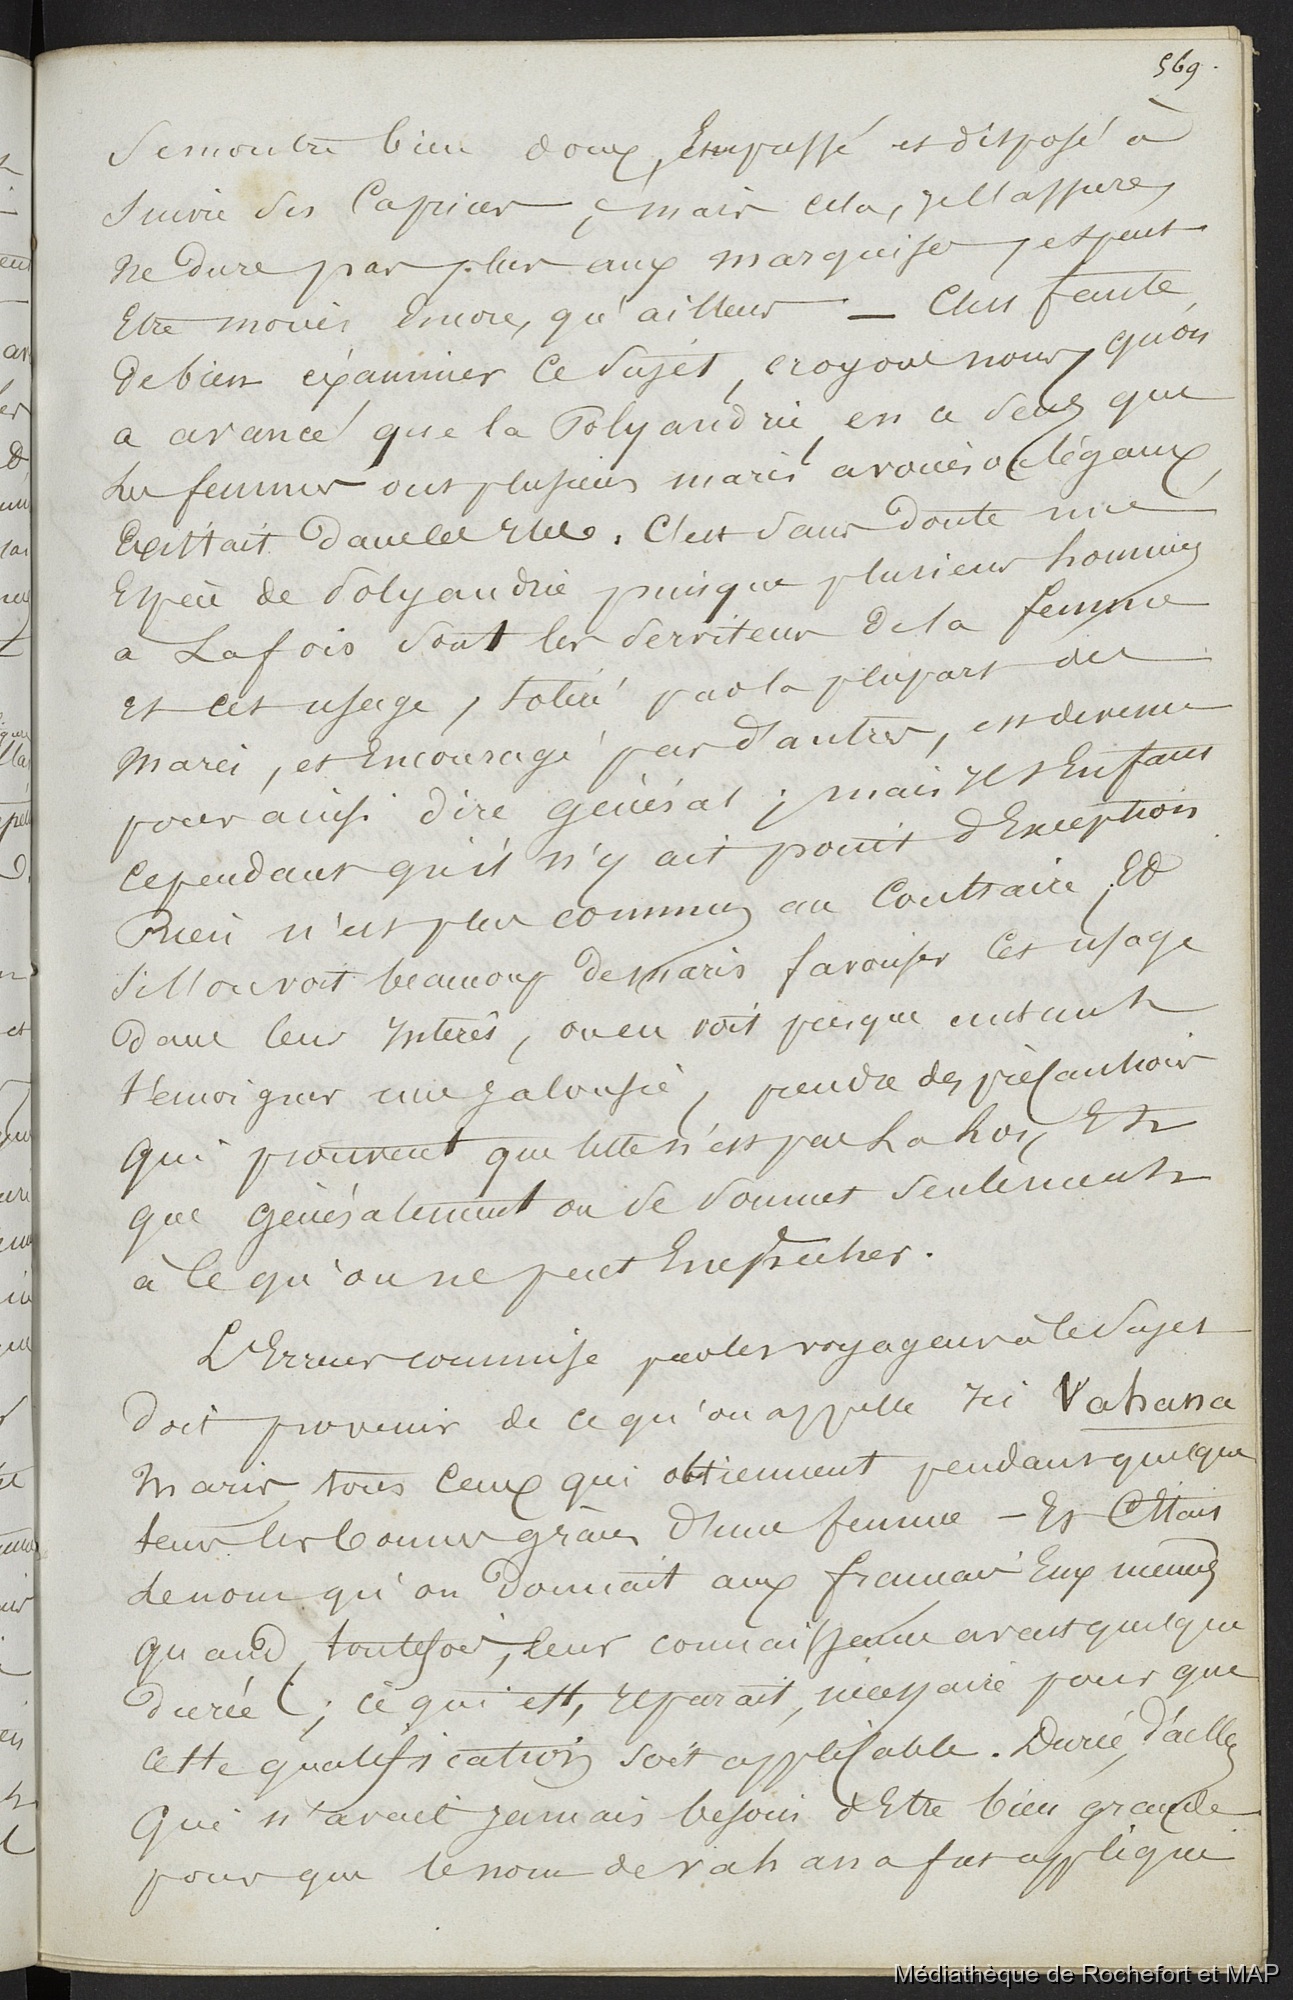 569.
Se montre bien doux, Empressé et disposé à
Suivre Ses Caprices, mais cela, je l'assure,
Ne Dure pas plus aux marquises, et peut
Etre moins Encore, qu'ailleurs — C'est faute,
De bien éxaminer Ce Sujet, croyons nous, qu'on
a avancé que la Polyandrie, en ce Sens que
Les femmes ont plusieurs maris avoués ou légaux,
Existait Dans ces Iles. C'est Sans Doute une
Espèce de Polyandrie puisque plusieurs hommes
a La fois Sont les Serviteurs De la femme
et cet usage, toléré par la plupart des
Maris, et Encouragé par d'autres, est devenu
pour ainsi dire général ; mais il s'en faut
Cependant qu'il n'y ait point d'Exception
Rien n'est plus commun au Contraire, Et
Si l'on voit beaucoup de maris favoriser Cet usage
Dans leur Interêt, on en voit presque autant
témoigner une Jalousie, prendre des précautions
Qui prouvent que telle n'est pas La Loi, Et
que généralement on Se Soumet Seulement
à Ce qu'on ne peut Empêcher.
L'Erreur commise par les voyageurs à ce Sujet
Doit provenir de ce qu'on appelle Ici Vahana
Maris, tous Ceux qui obtiennent pendant quelque
tems les bonnes grâces d'une femme — Et C'Etait
Le nom qu'on Donnait aux français Eux mêmes
quand, toutefois, leur connaissance avait quelque
durée ; ce qui est, il parait, nécessaire pour que
cette qualification soit applicable. Durée, d'aille
Qui n'avait Jamais besoin d'Etre bien grande
pour que le nom de vahana fut appliqué
Médiathèque de Rochefort et MAP